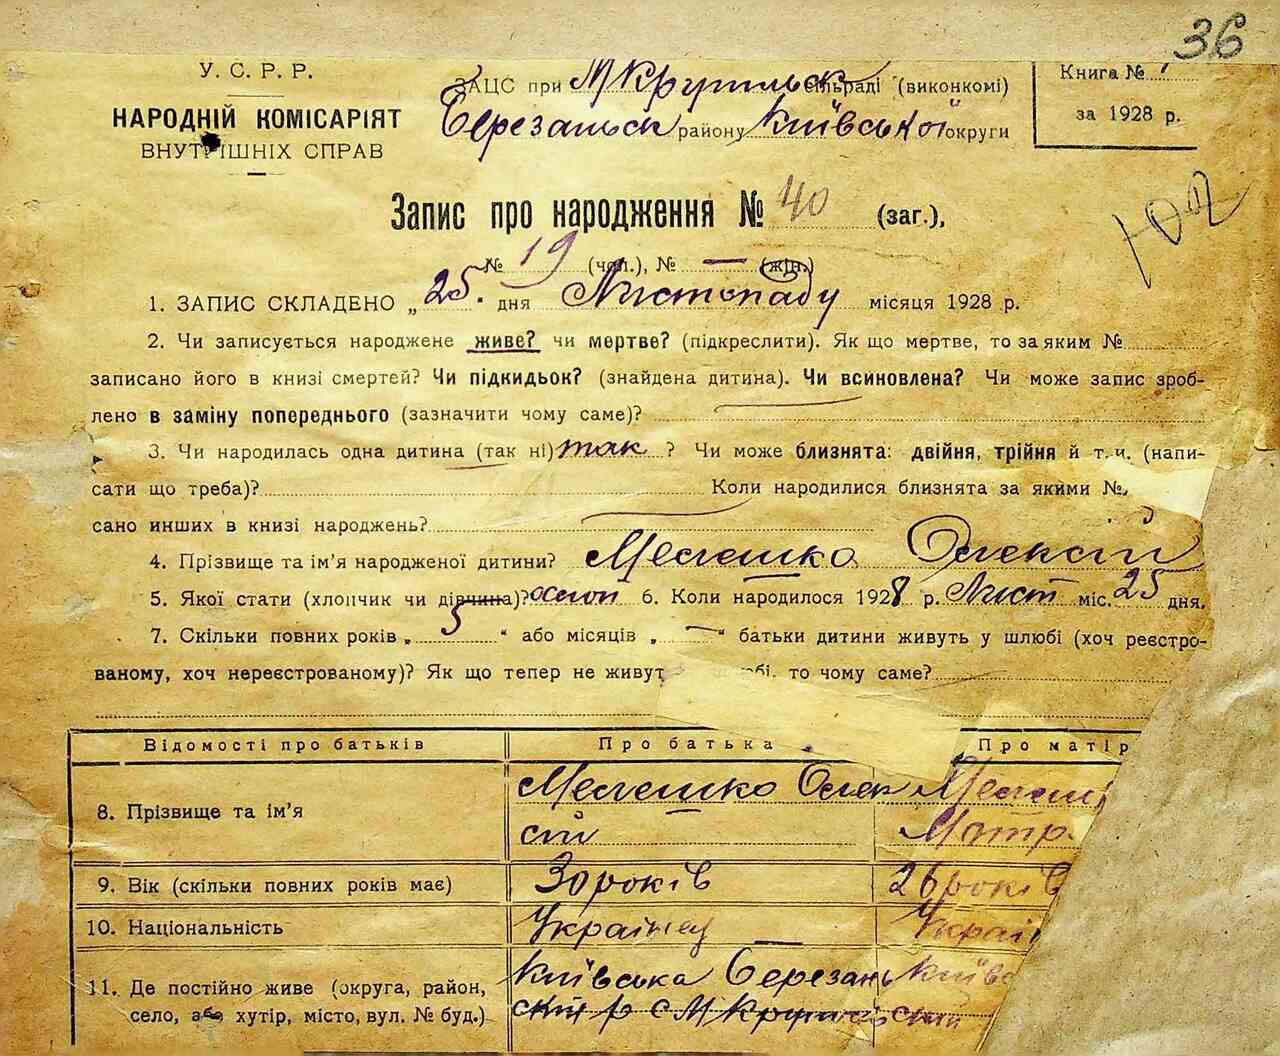 36
У. С. Р. Р.
НАРОДНІЙ КОМІСАРІЯТ
ВНУТРІШНІХ СПРАВ
ЗАЦС при сільраді (виконкомі)
Березанськ району Київської округи
Книга №
за 1928 р.
Запис про народження № 40 (заг.),
№ 19 (чол.), № — (жін.)
1. ЗАПИС СКЛАДЕНО „ 25 " дня Листопаду місяця 1928 р.
2. Чи записується народжене живе? чи мертве? (підкреслити). Як що мертве, то за яким №
записано його в книзі смертей? Чи підкидьок? (знайдена дитина). Чи всиновлена? Чи може запис зроб-
лено в заміну попереднього (зазначити чому саме)?
3. Чи народилась одна дитина (так ні) так ? Чи може близнята: двійня, трійня й т. и. (напи-
сати що треба)? Коли народилися близнята за якими №
сано инших в книзі народжень?
4. Прізвище та ім'я народженої дитини? Мелешко Олексій
5. Якої стати (хлопчик чи дівчина)? 6. Коли народилося 1928 р. Лист міс. 25 дня.
7. Скільки повних років „ 5 " або місяців „ — " батьки дитини живуть у шлюбі (хоч реєстро-
ваному, хоч нереєстрованому)? Як що тепер не живут бі, то чому саме?
Відомості про батьків Про батька Про матір
8. Прізвище та ім'я Мелешко Олек Мелеш
сій Мотр
9. Вік (скільки повних років має) 30 років 26 років
10. Національність Українец Украін
11. Де постійно живе (округа, район, Київська Березань Київс
село, або хутір, місто, вул. № буд.) ский р с М